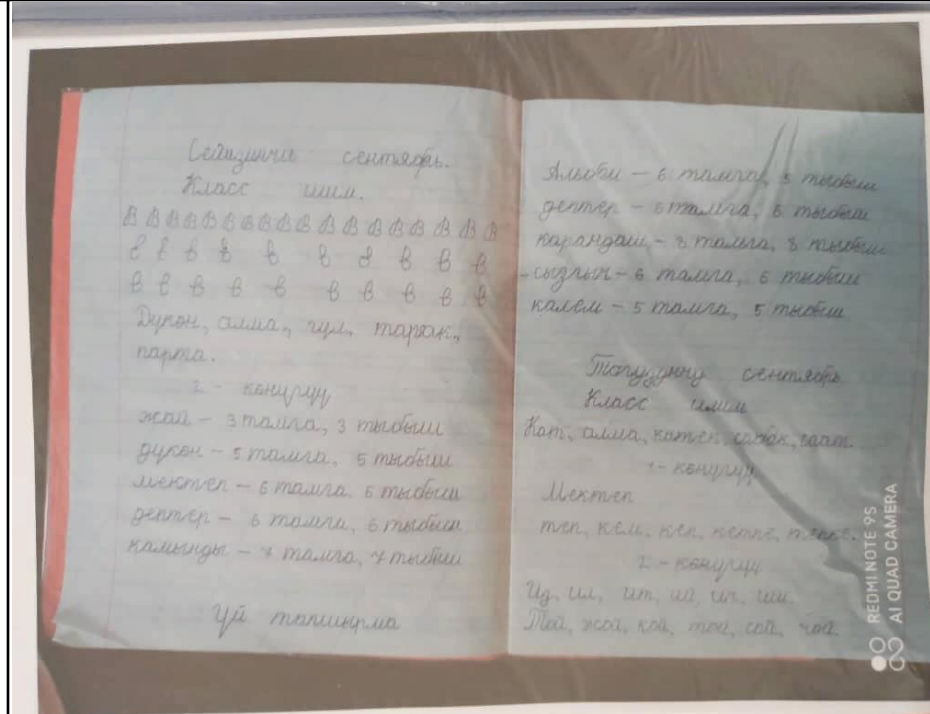 Сегизинчи сентябрь.
Класс иши.
В В В В В В В В В В В В В В В В В
в в в в в в в в в в
в в в в в в в в в в
Дукон, алма, гул, тарак,
парта.
2 - конугуу
жай - 3 тамга, 3 тыбыш
дукон - 5 тамга, 5 тыбыш
мектеп - 6 тамга. 6 тыбыш
дептер - 6 тамга, 6 тыбыш
камынды - 7 тамга, 7 тыбыш
Үй тапшырма
- 6 тамга, 5 тыбыш
дептер - 6 тамга, 6 тыбыш
карандаш - 8 тамга, 8 тыбыш
сызгыч - 6 тамга, 6 тыбыш
калем - 5 тамга, 5 тыбыш
Тогузунчу сентябрь
Класс иши
Кат, алма, китеп, сабак, саат.
1 - конугуу
Мектеп
теп, кем, кеп, кетпе, тепке.
2 - конугуу
Из, ил, ит, ий, ич, иш.
Той, жой, кой, тон, сой, чой
REDMI NOTE 9S
AI QUAD CAMERA